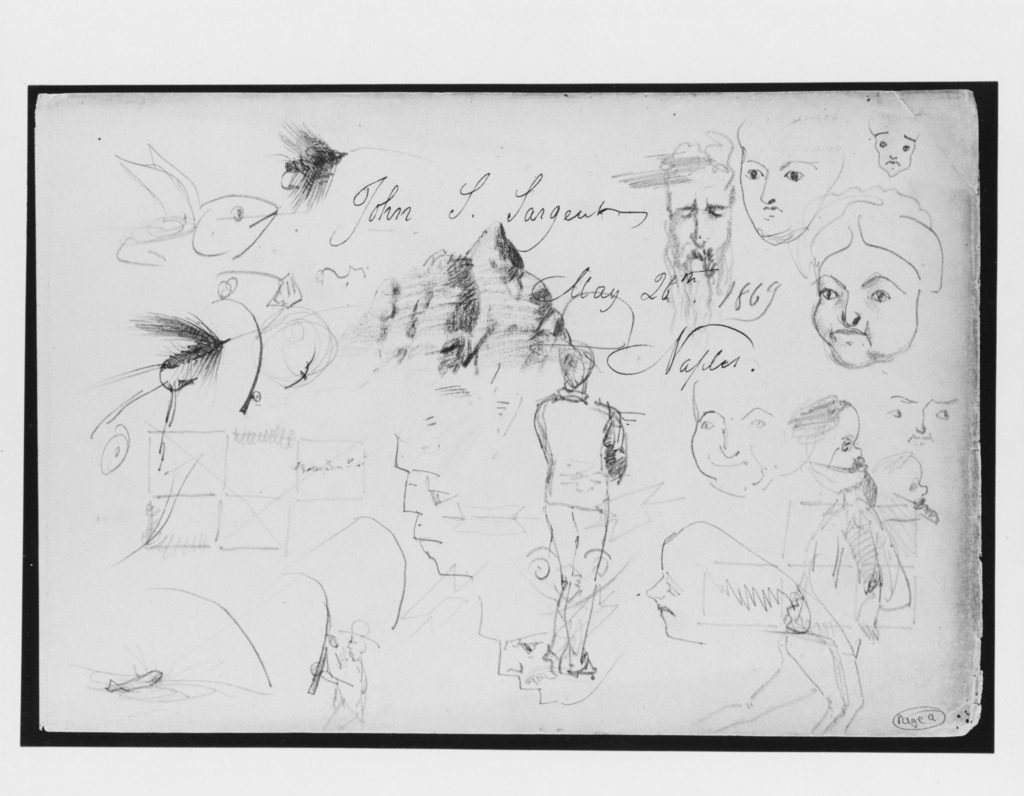 John S. Sargent
May 28th. 1869
Naples.
Page a